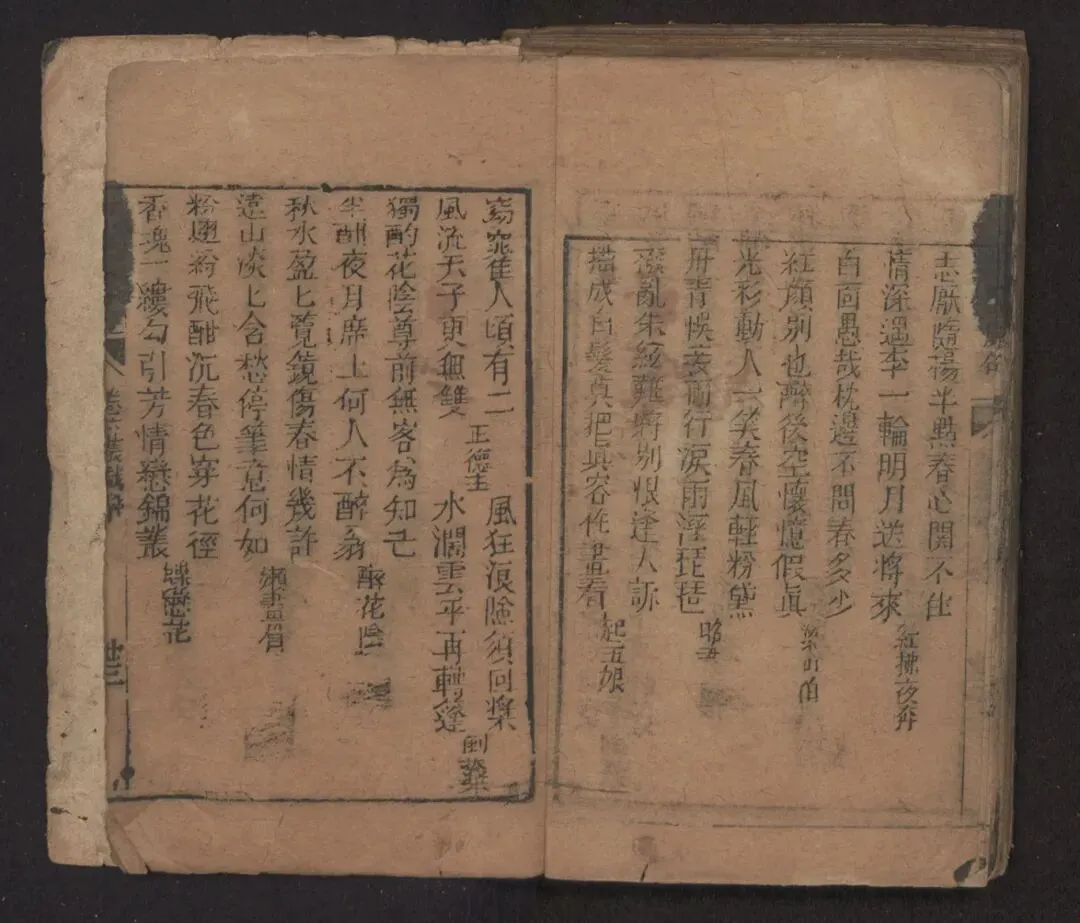 志厭隨楊半點春心関不住
情深遇李一輪明月送將來 紅拂夜奔
白面愚哉枕邊不問春多少
紅顔別也醉後空懷憶假眞 梁山伯
光彩動人一笑春風輕粉黛
丹青悞妾兩行淚雨溼琵琶
撥亂朱絃難將別恨逢人訴
描成白髮真把眞容作畫看 趙五娘
窈窕佳人頃有二
風流天子更無雙 正德主
風狂浪險須回槳
水濶雲平再轉篷 倒槳
獨酌花陰尊前無客為知己
半酣夜月席上何人不醉翁 醉花陰
秋水盈匕覽鏡傷春情幾許
遠山淡匕含愁停筆意何如 懶畫眉
粉翅紛飛酣沉春色穿花徑
香魂一縷勾引芳情戀錦叢 蝶戀花
廿三